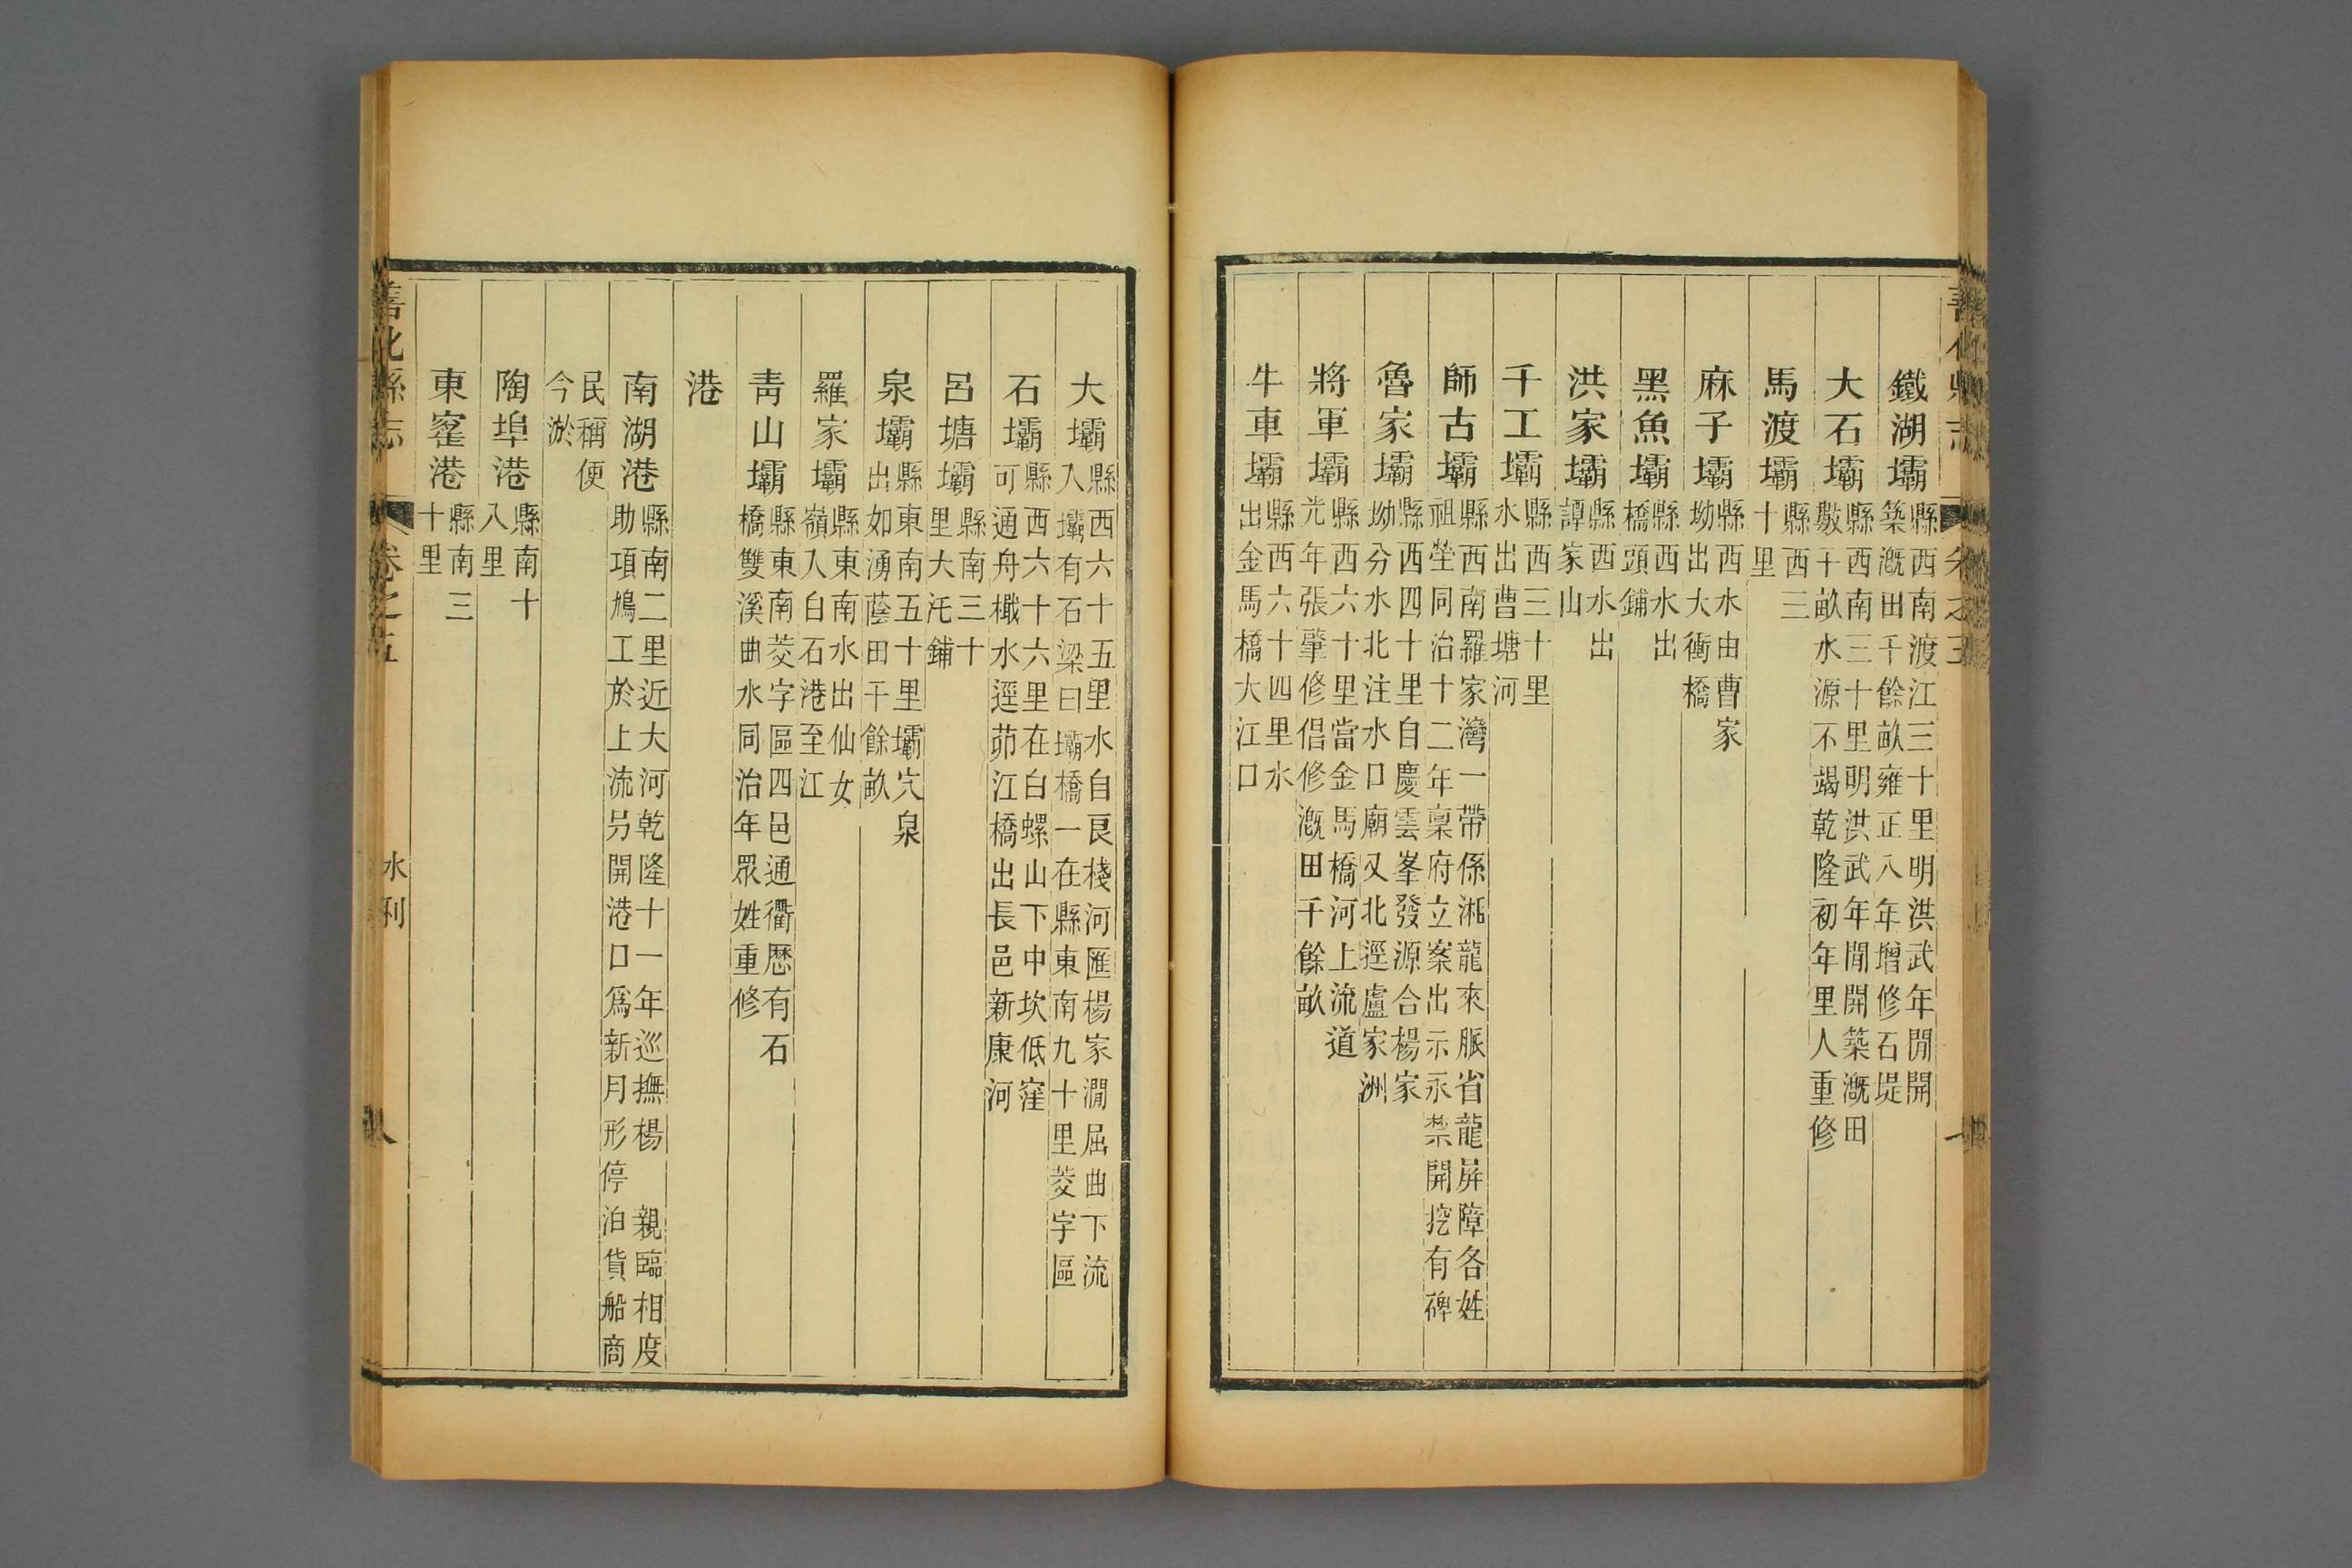 鐵湖壩縣西南渡江三十里明洪武年閒開築漑田千餘畝雍正八年增修石堤
大石壩縣西南三十里明洪武年閒開築漑田數千畝水源不竭乾隆初年里人重修
馬渡壩縣西三十里
麻子壩縣西水由曹家坳出大衝橋
黑魚壩縣西水出橋頭鋪
洪家壩縣西水出譚家山
千工壩縣西三十里水出曹塘河
師古壩縣西南羅家灣一帶係湘龍來脈省龍屛障各姓祖塋同治十二年稟府立案出示永禁開挖有碑
魯家壩縣西四十里自慶雲峯發源合楊家坳分水北注水口廟又北逕盧家洲
將軍壩縣西六十里當金馬橋河上流道光年張肇修倡修漑田千餘畝
牛車壩縣西六十四里水出金馬橋大江口
大壩縣西六十五里水自艮棧河匯楊家澗屈曲下流入壩有石梁曰壩橋一在縣東南九十里菱字區
石壩縣西六十六里在白螺山下中坎低窪可通舟檝水逕茆江橋出長邑新康河
呂塘壩縣南三十里大汑鋪
泉壩縣東南五十里壩宂泉出如湧蔭田千餘畝
羅家壩縣東南水出仙女嶺入白石港至江
靑山壩縣東南菱字區四邑通衢歷有石橋雙溪曲水同治年眾姓重修
港
南湖港縣南二里近大河乾隆十一年巡撫楊 親臨相度助項鳩工於上流另開港口爲新月形停泊貨船商
民稱便今淤
陶埠港縣南十八里
東窰港縣南三十里
善化縣志 卷之五 水利